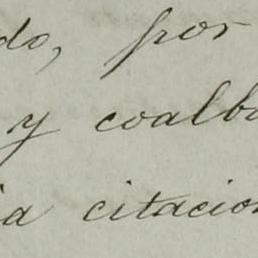 do, por
y coalb
ia citacion